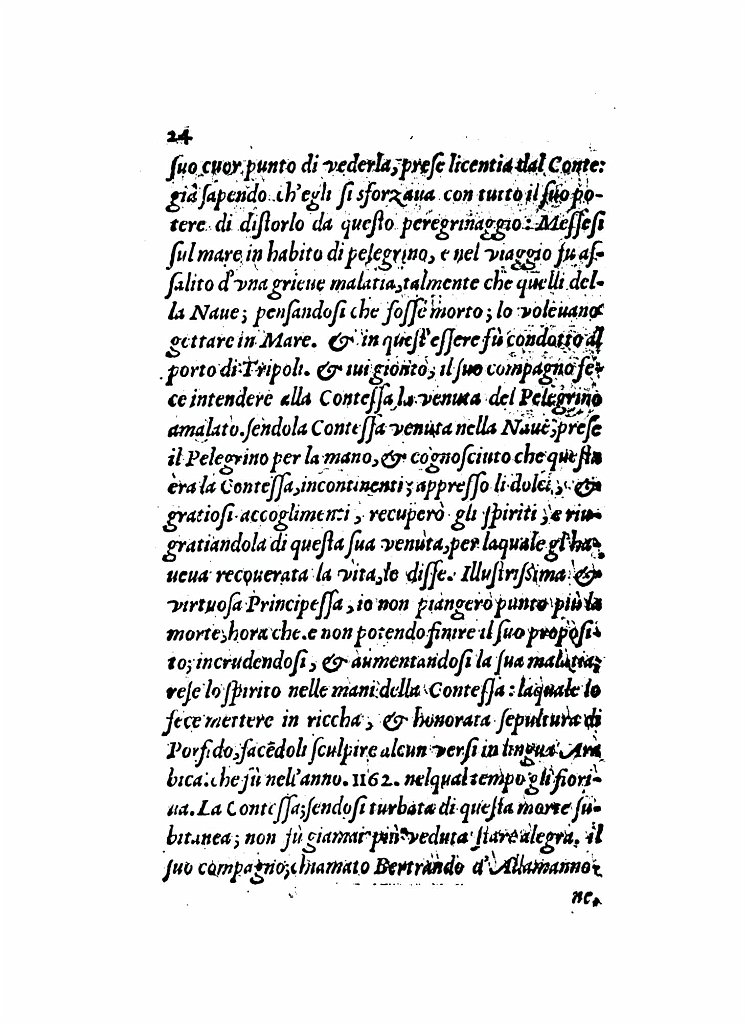 24
ſuo cuor punto di vederla, preſe licentia dal Conte:
già ſapendo ch'egli ſi sforzaua con tutto il ſuo po-
tere di diſtorlo da queſto peregrinaggio: Meſſeſi
ſul mare in habito di pelegrino, e nel viaggio fu aſ-
ſalito d'vna grieue malatia, talmente che quelli del-
la Naue; penſandoſi che foſſe morto; lo voleuano
gettare in Mare. & in queſt'eſſere fù condotto al
porto di Tripoli. & iui gionto, il ſuo compagno fe-
ce intendere alla Conteſſa la venuta del Pelegrino
amalato. ſendo la Conteſſa venuta nella Naue, preſe
il Pelegrino per la mano, & cognoſciuto che queſta
era la Conteſſa, incontinenti; appreſſo li dolci, &
gratioſi accoglimenti, recuperò gli ſpiriti, e rin-
gratiandola di queſta ſua venuta, per laquale gl'ha-
ueua recouerata la vita, le diſſe. Illuſtriſsima &
virtuoſa Principeſſa, io non piangerò punto più la
morte, hora che. e non potendo finire il ſuo propoſi-
to; incrudendoſi, & aumentandoſi la ſua malatia;
reſe lo ſpirito nelle mani della Conteſſa: laquale lo
fece mettere in riccha, & honorata ſepultura di
Porfido, facēdoli ſculpire alcun verſi in lingua Ara
bica. che fù nell'anno. 1162. nelqual tempo gli fiori-
ua. La Conteſſa; ſendoſi turbata di queſta morte ſu-
bitanea; non fù giamai più veduta ſtare alegra. il
ſuo compagno; chiamato Bertrando d'Allamanno
ne,